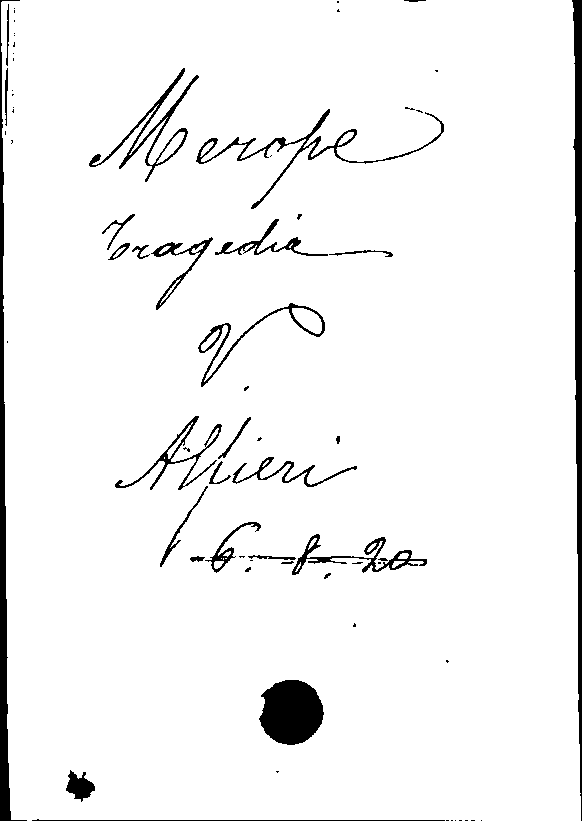 Merope
Tragedia
V.
Alfieri
6. 8. 20